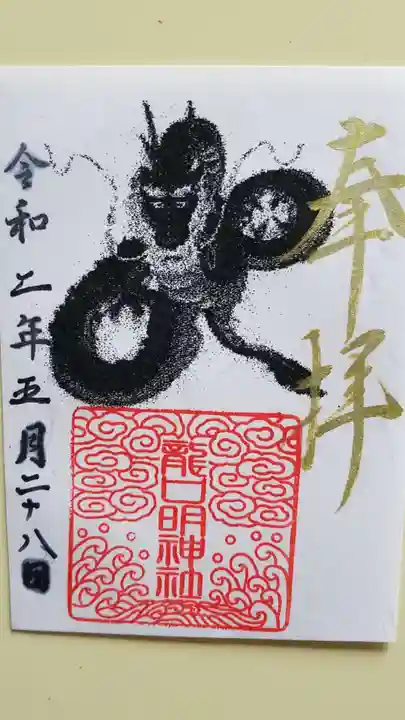 奉拝
龍口明神社
令和二年五月二十八日